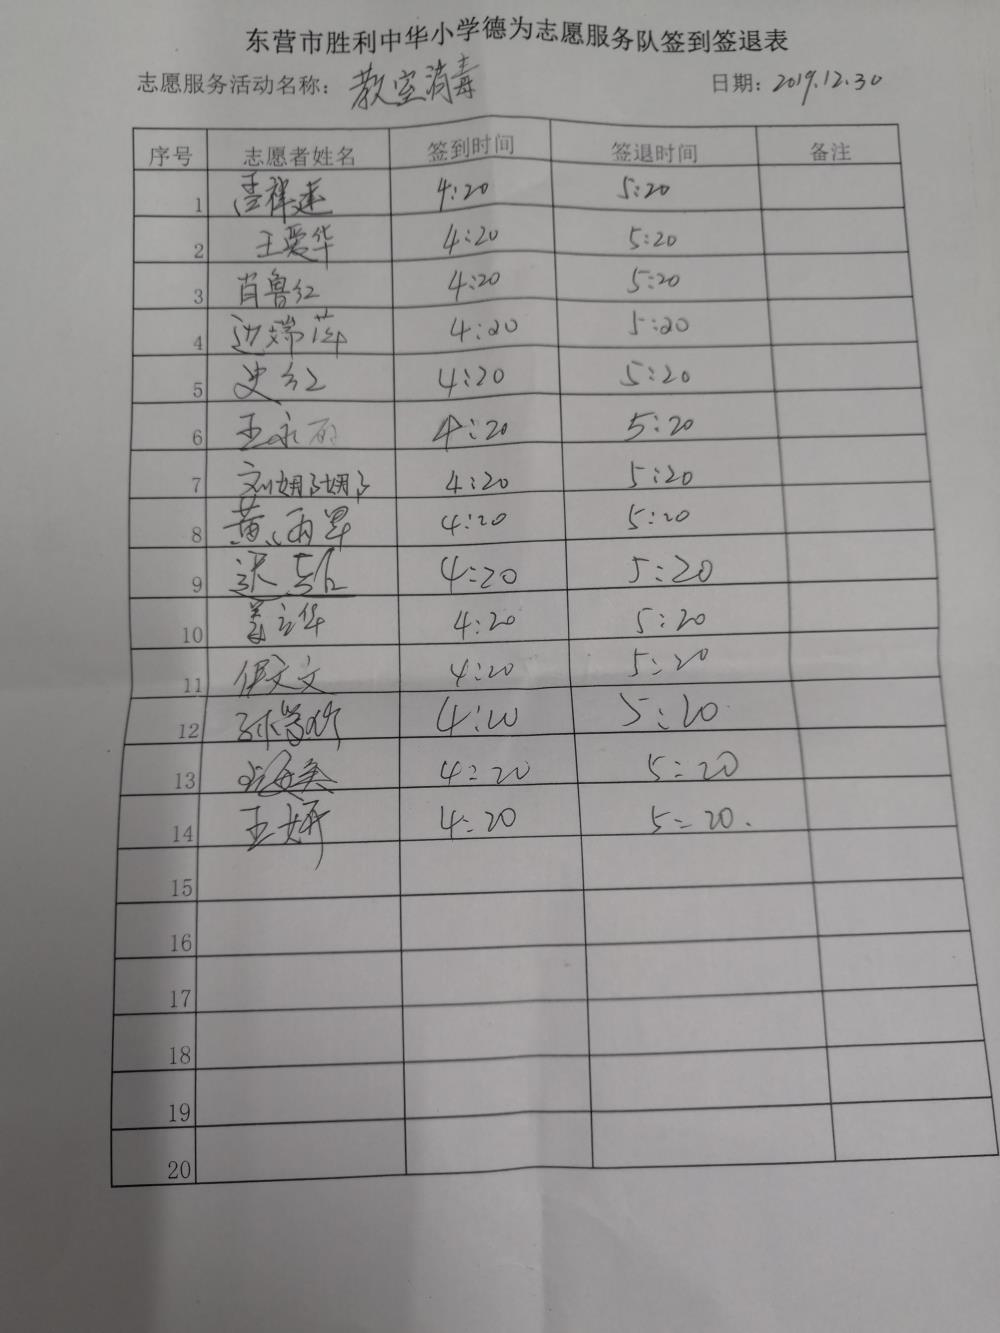 东营市胜利中华小学德为志愿服务队签到签退表
志愿服务活动名称：教室消毒 日期：2019.12.30
序号 志愿者姓名 签到时间 签退时间 备注
1 4:20 5:20
2 王爱华 4:20 5:20
3 肖鲁红 4:20 5:20
4 边瑞萍 4:20 5:20
5 史红 4:20 5:20
6 王永丽 4:20 5:20
7 刘娜娜 4:20 5:20
8 黄 4:20 5:20
9 张 4:20 5:20
10 姜立华 4:20 5:20
11 文文 4:20 5:20
12 孙 4:20 5:20
13 4:20 5:20
14 王妍 4:20 5:20.
15
16
17
18
19
20